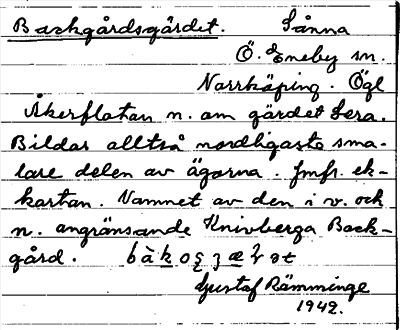 Backgårdsgärdet. Sånna
Ö. Eneby sn.
Norrköping. Ögl
Åkerflatan n. om gärdet Lera.
Bildar alltså nordligaste sma-
lare delen av ägorna. Jmfr. ek-
kartan. Namnet av den i v. och
n. angränsande Knivberga Back-
gård.
Gustaf Rämminge
1942.